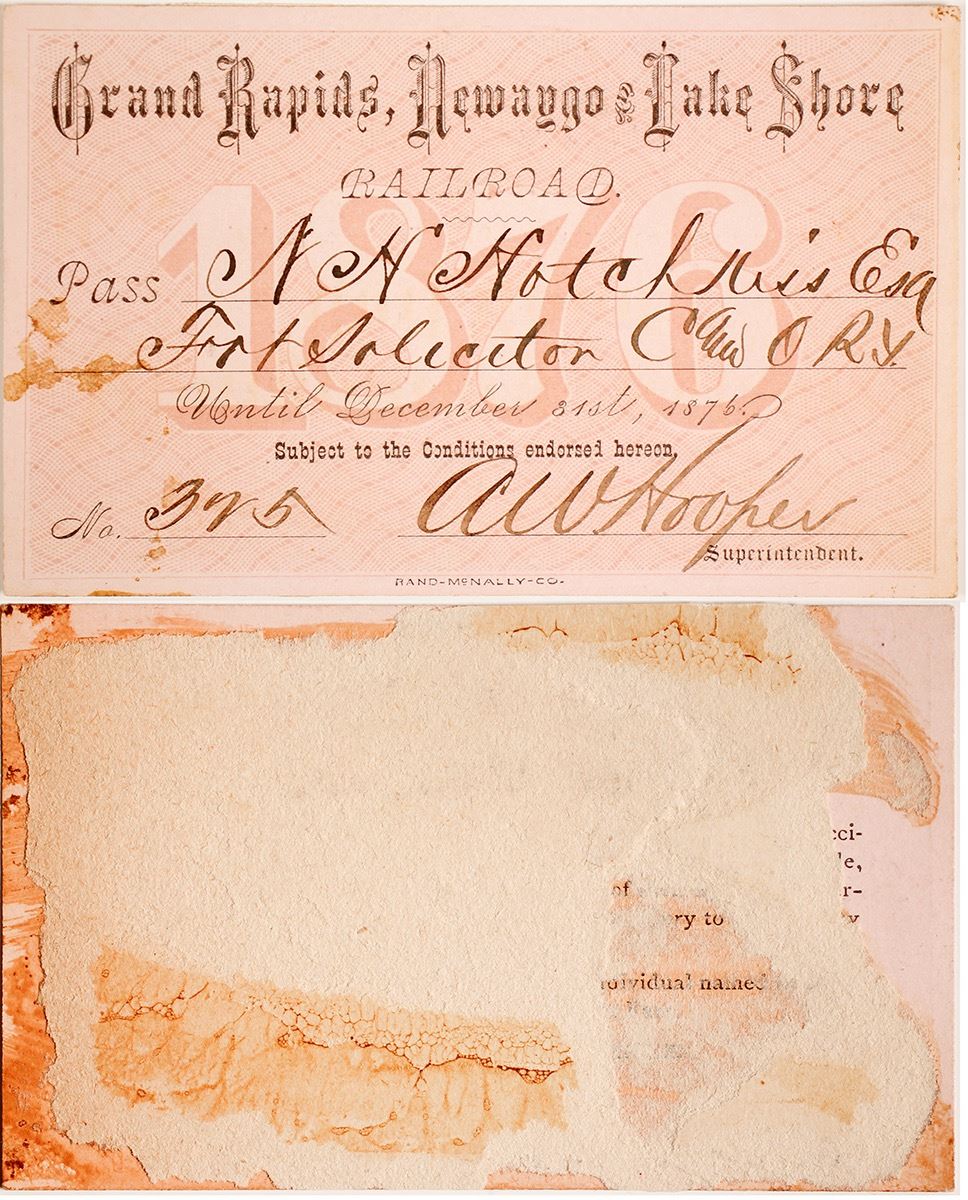 Grand Rapids, Newaygo and Lake Shore
RAILROAD.
1876
Pass N H Hotchkiss Esq
Frt Solicitor C & O R.y.
Until December 31st, 1876.
Subject to the Conditions endorsed hereon,
No. 325 A W Hooper
Superintendent.
RAND-McNALLY-CO-
cci-
e,
of r-
ry to y
individual named